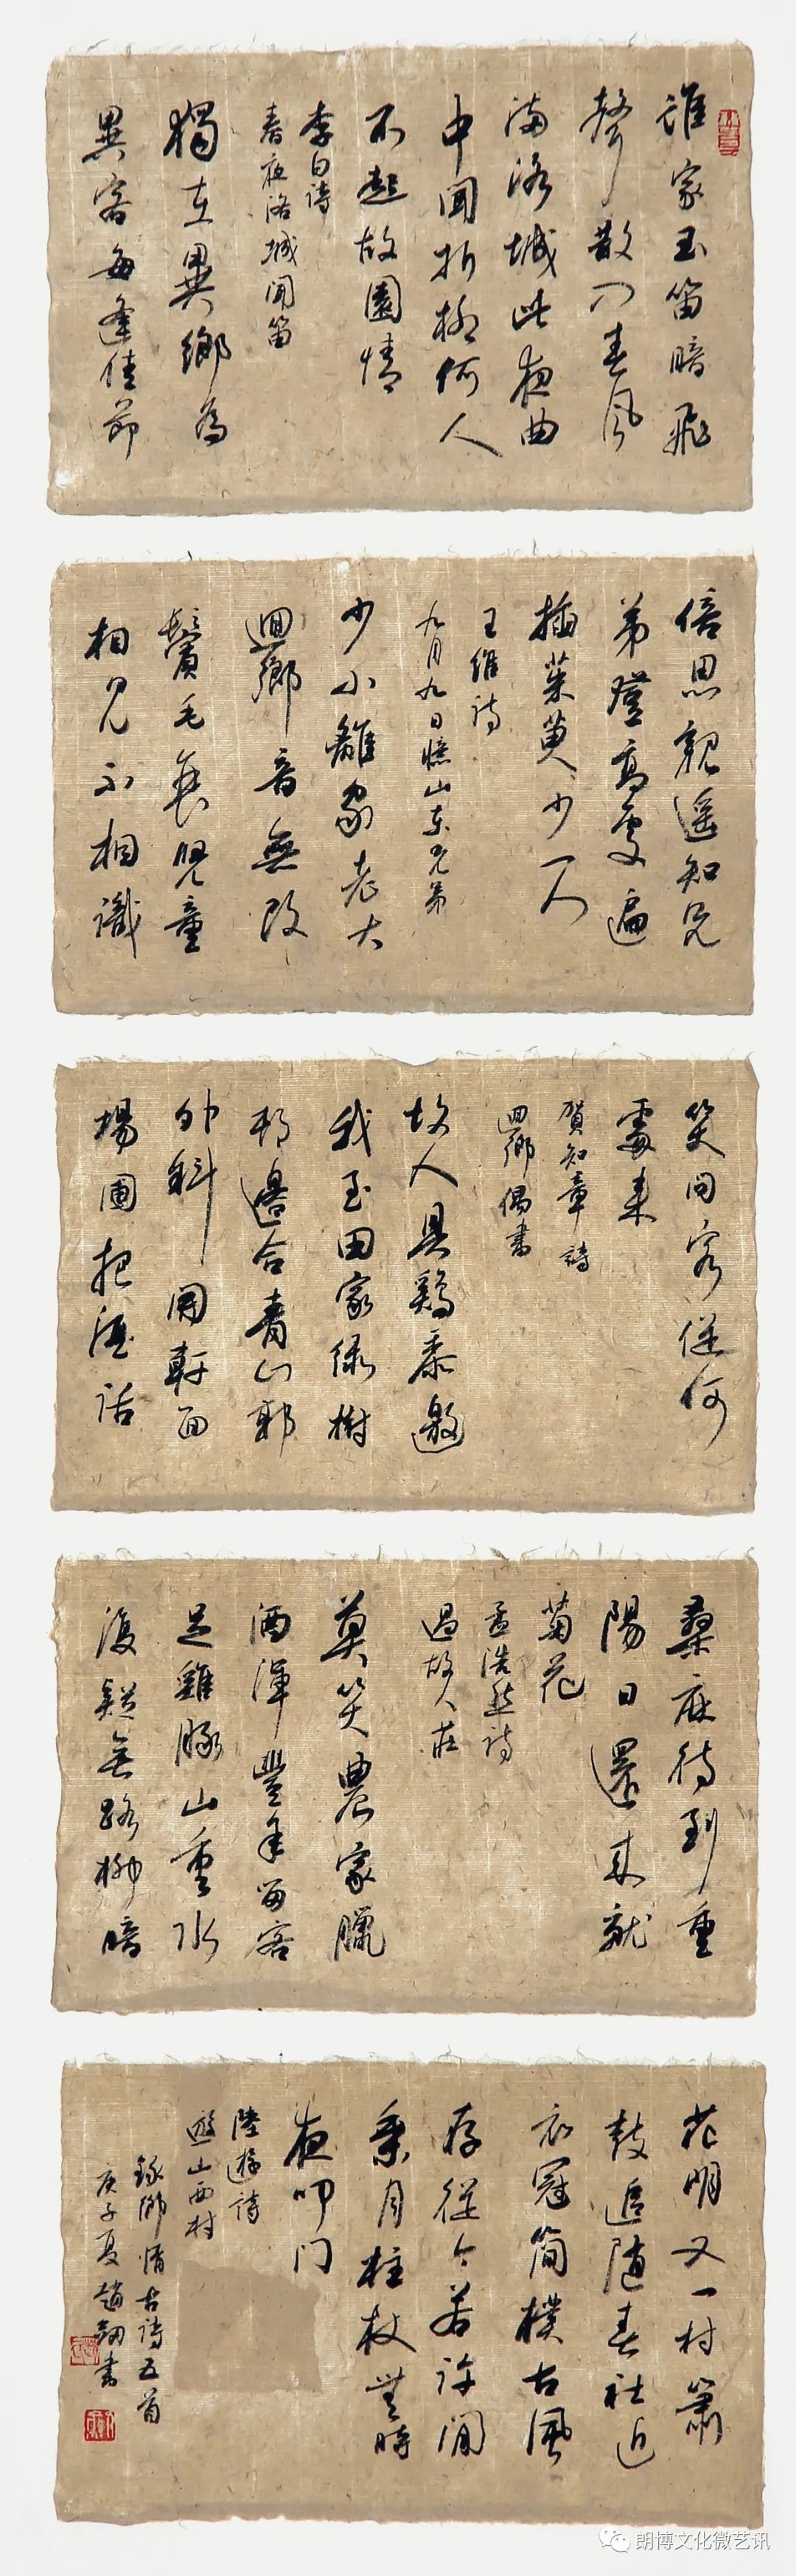 誰家玉笛暗飛
聲散入春風
滿洛城此夜曲
中聞折柳何人
不起故園情
李白詩
春夜洛城聞笛
獨在異鄉為
異客每逢佳節
倍思親遥知兄
弟登高處遍
插茱萸少一人
王維詩
九月九日憶山東兄弟
少小離家老大
迴鄉音無改
鬢毛衰兒童
相見不相識
笑問客從何
處來
賀知章詩
迴鄉偶書
故人具鷄黍邀
我至田家綠樹
村邊合青山郭
外斜開軒面
場圃把酒話
桑麻待到重
陽日還來就
菊花
孟浩然詩
過故人莊
莫笑農家臘
酒渾豐年留客
足雞豚山重水
復疑無路柳暗
花明又一村簫
鼓追隨春社近
衣冠簡樸古風
存從今若許閒
乘月柱杖無時
夜叩门
陸游詩
遊山西村
録鄉情古詩五首
庚子夏趙
書
朗博文化微艺讯